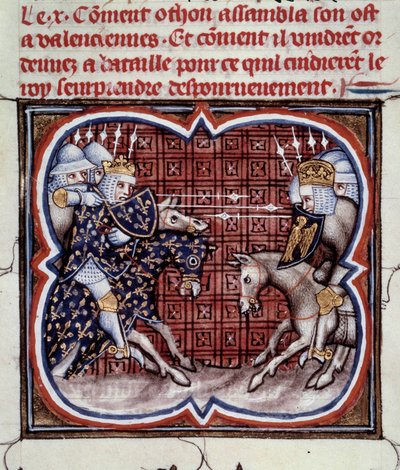 Le .x. Cõment othon assambla son ost
a valenciennes. Et cõment il vindrẽt or
denez a bataille pour ce quil cuidierẽt le
roy seurprendre despourueuement.